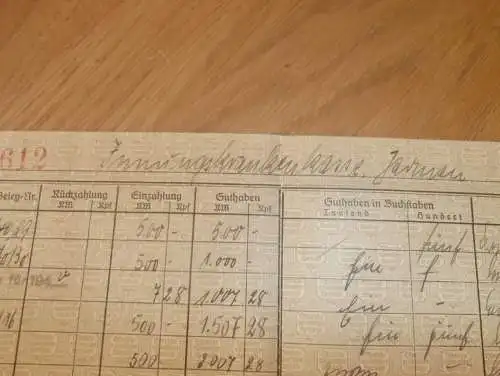 612 Innungskrankenkasse, Jarmen
Beleg-Nr. Rückzahlung Einzahlung Guthaben Guthaben in Buchstaben
RM Rpf RM Rpf RM Rpf Tausend Hundert
500 - 500 - fünf
500 - 1.000 - Ein
7 28 1.007 28 Ein -
500 - 1.507 28 Ein fünf
500 2007 28